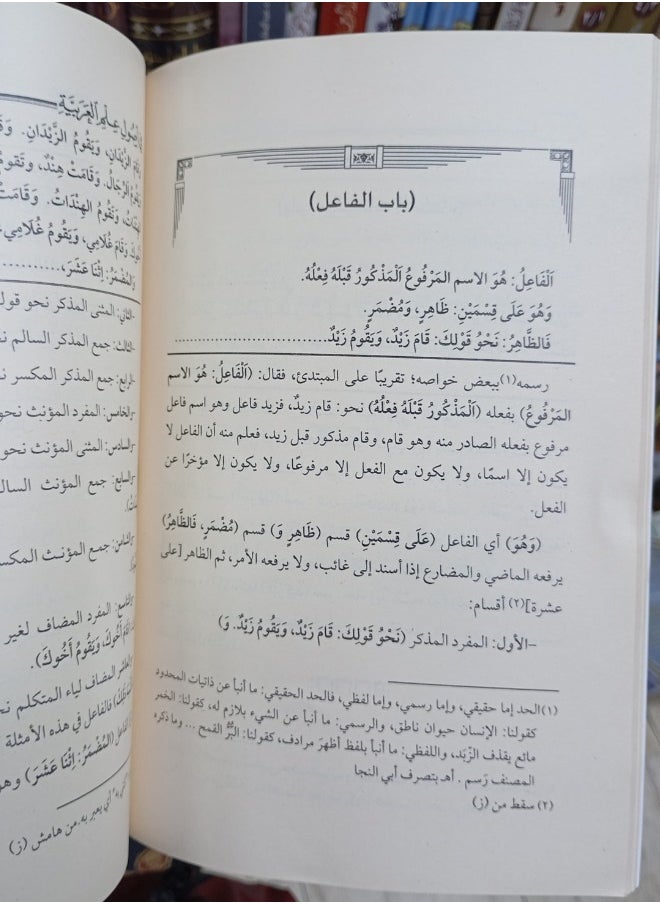 (باب الفاعل)
اَلْفَاعِلُ: هُوَ الاسم المَرْفُوعُ اَلْمَذْكُورُ قَبْلَهُ فِعْلُهُ.
وَهُوَ عَلَى قِسْمَيْنِ: ظَاهِرٍ، وَمُضْمَرٍ.
فَالظَّاهِرُ: نَحْوُ قَوْلِكَ: قَامَ زَيْدٌ، وَيَقُومُ زَيْدٌ........................
رسمه(١) ببعض خواصه؛ تقريبًا على المبتدئ، فقال: (اَلْفَاعِلُ: هُوَ الاسم
المَرْفُوعُ) بفعله (اَلْمَذْكُورُ قَبْلَهُ فِعْلُهُ) نحو: قام زيدٌ، فزيد فاعل وهو اسم فاعل
مرفوع بفعله الصادر منه وهو قام، وقام مذكور قبل زيد، فعلم منه أن الفاعل لا
يكون إلا اسمًا، ولا يكون مع الفعل إلا مرفوعًا، ولا يكون إلا مؤخرًا عن
الفعل.
(وَهُوَ) أي الفاعل (عَلَى قِسْمَيْنِ) قسم (ظَاهِرٍ وَ) قسم (مُضْمَرٍ، فَالظَّاهِرُ)
يرفعه الماضي والمضارع إذا أسند إلى غائب، ولا يرفعه الأمر، ثم الظاهر [على
عشرة](٢) أقسام:
-الأول: المفرد المذكر (نَحْوُ قَوْلِكَ: قَامَ زَيْدٌ، وَيَقُومُ زَيْدٌ. وَ)
(١) الحد إما حقيقي، وإما رسمي، وإما لفظي، فالحد الحقيقي: ما أنبأ عن ذاتيات المحدود
كقولنا: الإنسان حيوان ناطق، والرسمي: ما أنبأ عن الشيء بلازم له، كقولنا: الخمر
مائع يقذف الزّبَد، واللفظي: ما أنبأ بلفظ أظهرَ مرادف، كقولنا: البُرُّ القمح ... وما ذكره
المصنف رَسم . أهـ بتصرف أبي النجا
(٢) سقط من (ز)
أصُولِ عِلْمِ الْعَرَبِيَّةِ
قَامَ الزَّيْدَانِ، وَيَقُومُ الزَّيْدَانِ.
الرِّجَالُ. وَقَامَتْ هِنْدٌ، وَتَقُومُ
وَتَقُومُ الهِنْدَاتُ. وَقَامَتْ
وَقَامَ غُلَامِي، وَيَقُومُ غُلَامِي
وَالمُضْمَرُ: اِثْنَا عَشَرَ،............
-الثاني: المثنى المذكر نحو قول
-الثالث: جمع المذكر السالم
-الرابع: جمع المذكر المكسر
-الخامس: المفرد المؤنث نحو
-السادس: المثنى المؤنث نحو
-السابع: جمع المؤنث السالم
-الثامن: جمع المؤنث المكسر
المفرد المضاف لغير
أَخُوكَ، وَيَقُومُ أَخُوكَ).
المضاف لياء المتكلم
فالفاعل في هذه الأمثلة
(المُضْمَرُ: اِثْنَا عَشَرَ)
أي يعبر به. من هامش (ز)